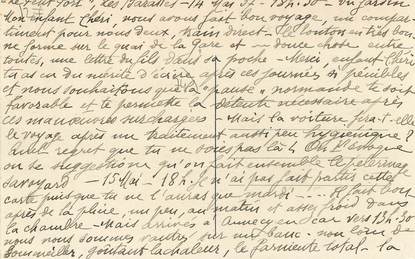 Les Barattes - 14 Mai 37 - 18h.30 - Au jardin
Mon enfant Chéri, nous avons fait bon voyage, un compar-
timent pour nous deux, train direct. Le tonton en très bon-
ne forme sur le quai de la Gare et - douce chose entre
toutes, une lettre du fils dans sa poche - Merci, enfant Chéri
tu as eu du mérite d'écrire après ces journées si pénibles
et nous souhaitons que la "pause" normande te soit
favorable et te permette la détente nécessaire après
ces manœuvres surchargées - Mais la voiture fera-t-elle
le voyage après un traitement aussi peu hygiénique ?
Quel regret que tu ne sois pas là ! On t'évoque
on se suggestionne qu'on fait ensemble le pèlerinage
savoyard - 15 Mai - 18h. Je n'ai pas fait partir cette
carte puisque tu ne l'auras que mardi - Il fait bon
après de la pluie, un peu, au matin et assez froid dans
la chambre - Mais arrivés à Annecy en car vers 13h.30
nous nous sommes vautrés sur un banc - non loin de
sommeiller, goûtant la chaleur, le farniente total - la